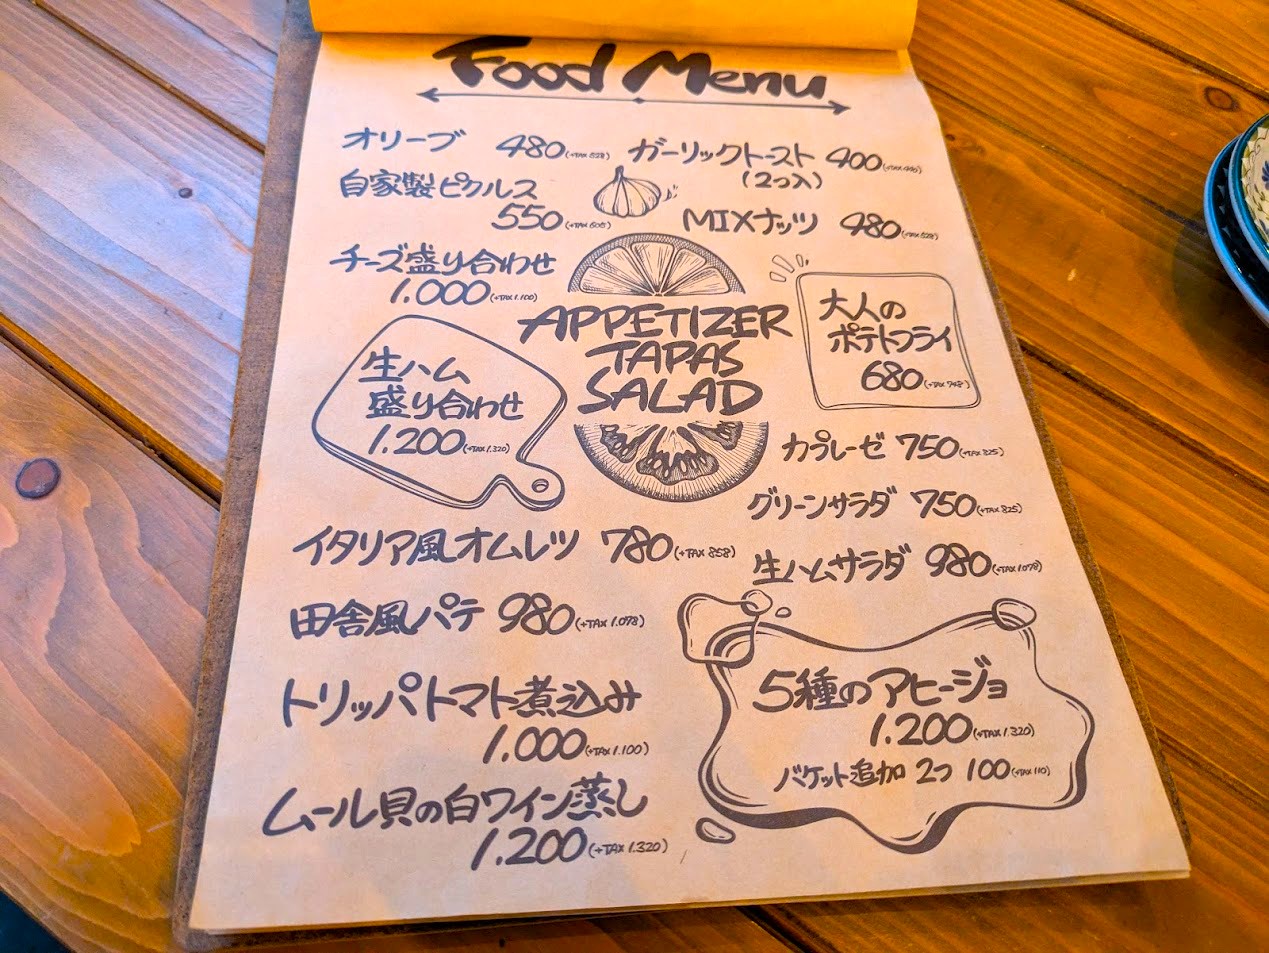 Food Menu
オリーブ 480(+TAX 528)
自家製ピクルス
550(+TAX 605)
チーズ盛り合わせ
1.000(+TAX 1.100)
生ハム
盛り合わせ
1.200(+TAX 1.320)
ガーリックトースト 400(+TAX 440)
(2つ入)
MIXナッツ 480(+TAX 528)
APPETIZER
TAPAS
SALAD
大人の
ポテトフライ
680(+TAX 748)
カプレーゼ 750(+TAX 825)
グリーンサラダ 750(+TAX 825)
生ハムサラダ 980(+TAX 1.078)
イタリア風オムレツ 780(+TAX 858)
田舎風パテ 980(+TAX 1.078)
トリッパトマト煮込み
1.000(+TAX 1.100)
ムール貝の白ワイン蒸し
1.200(+TAX 1.320)
5種のアヒージョ
1.200(+TAX 1.320)
バケット追加 2つ 100(+TAX 110)